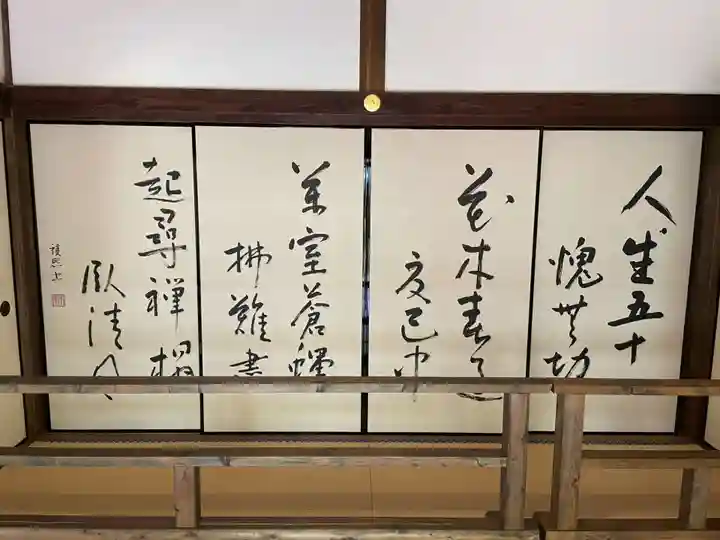 人生五十
愧無功
花木春過
夏已中
満室蒼蠅
難
起尋禅榻
臥清風
護熙